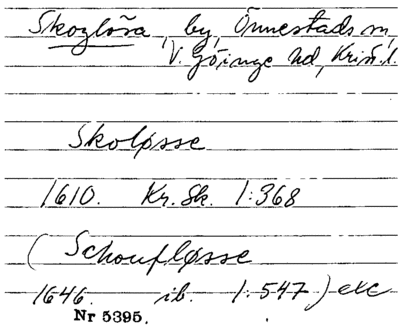 Skoglösa, by, Önnestads sn,
V. Göinge hd, Krist. l.
Skoløsse
1610. Kr. Sk. 1:368
(Schoufløsse
1646. ib. 1:547) etc
Nr 5395.